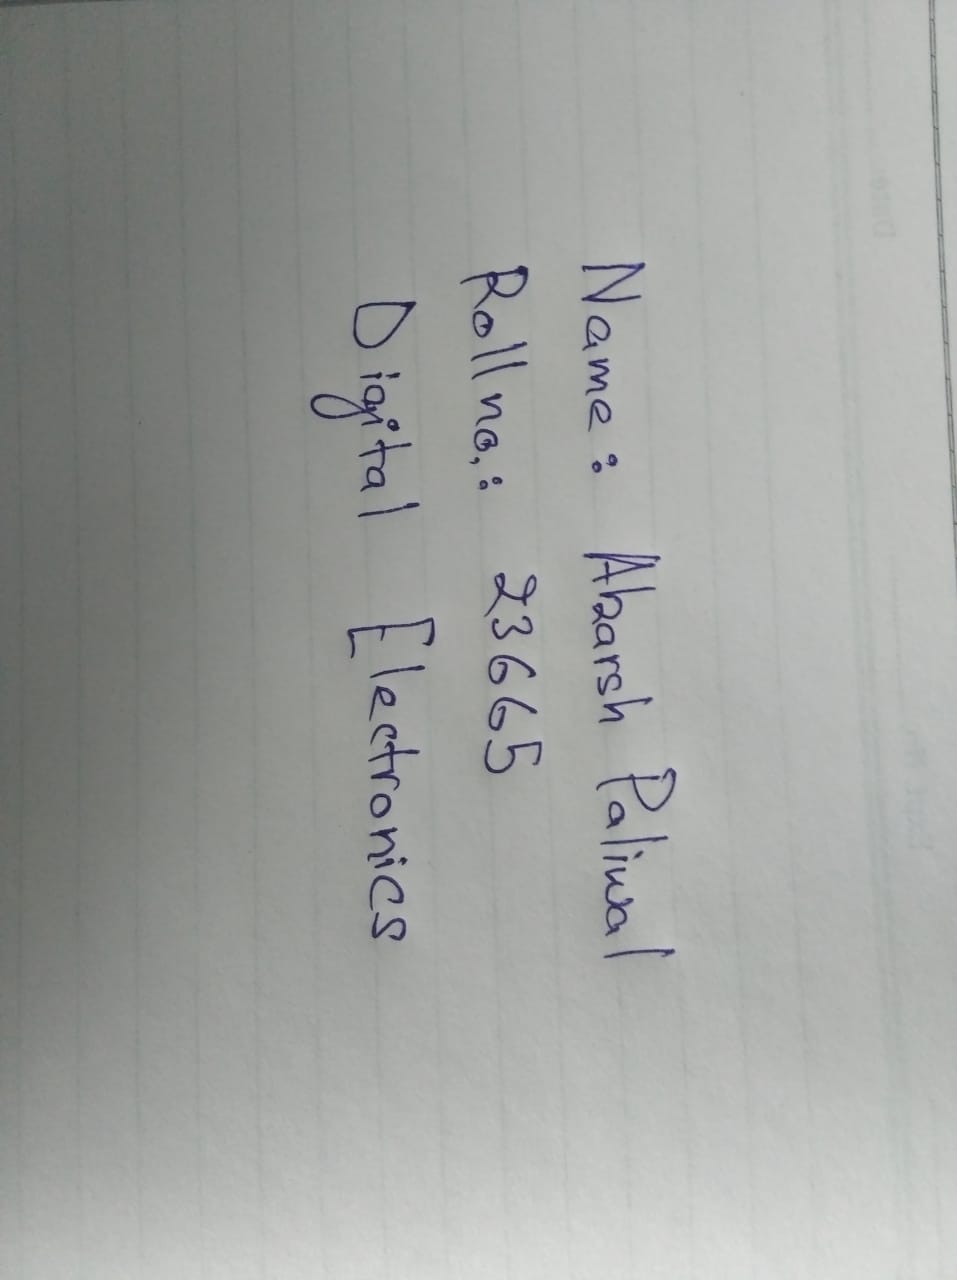 Name: Aharsh Paliwal
Roll no.: 23665
Digital Electronics